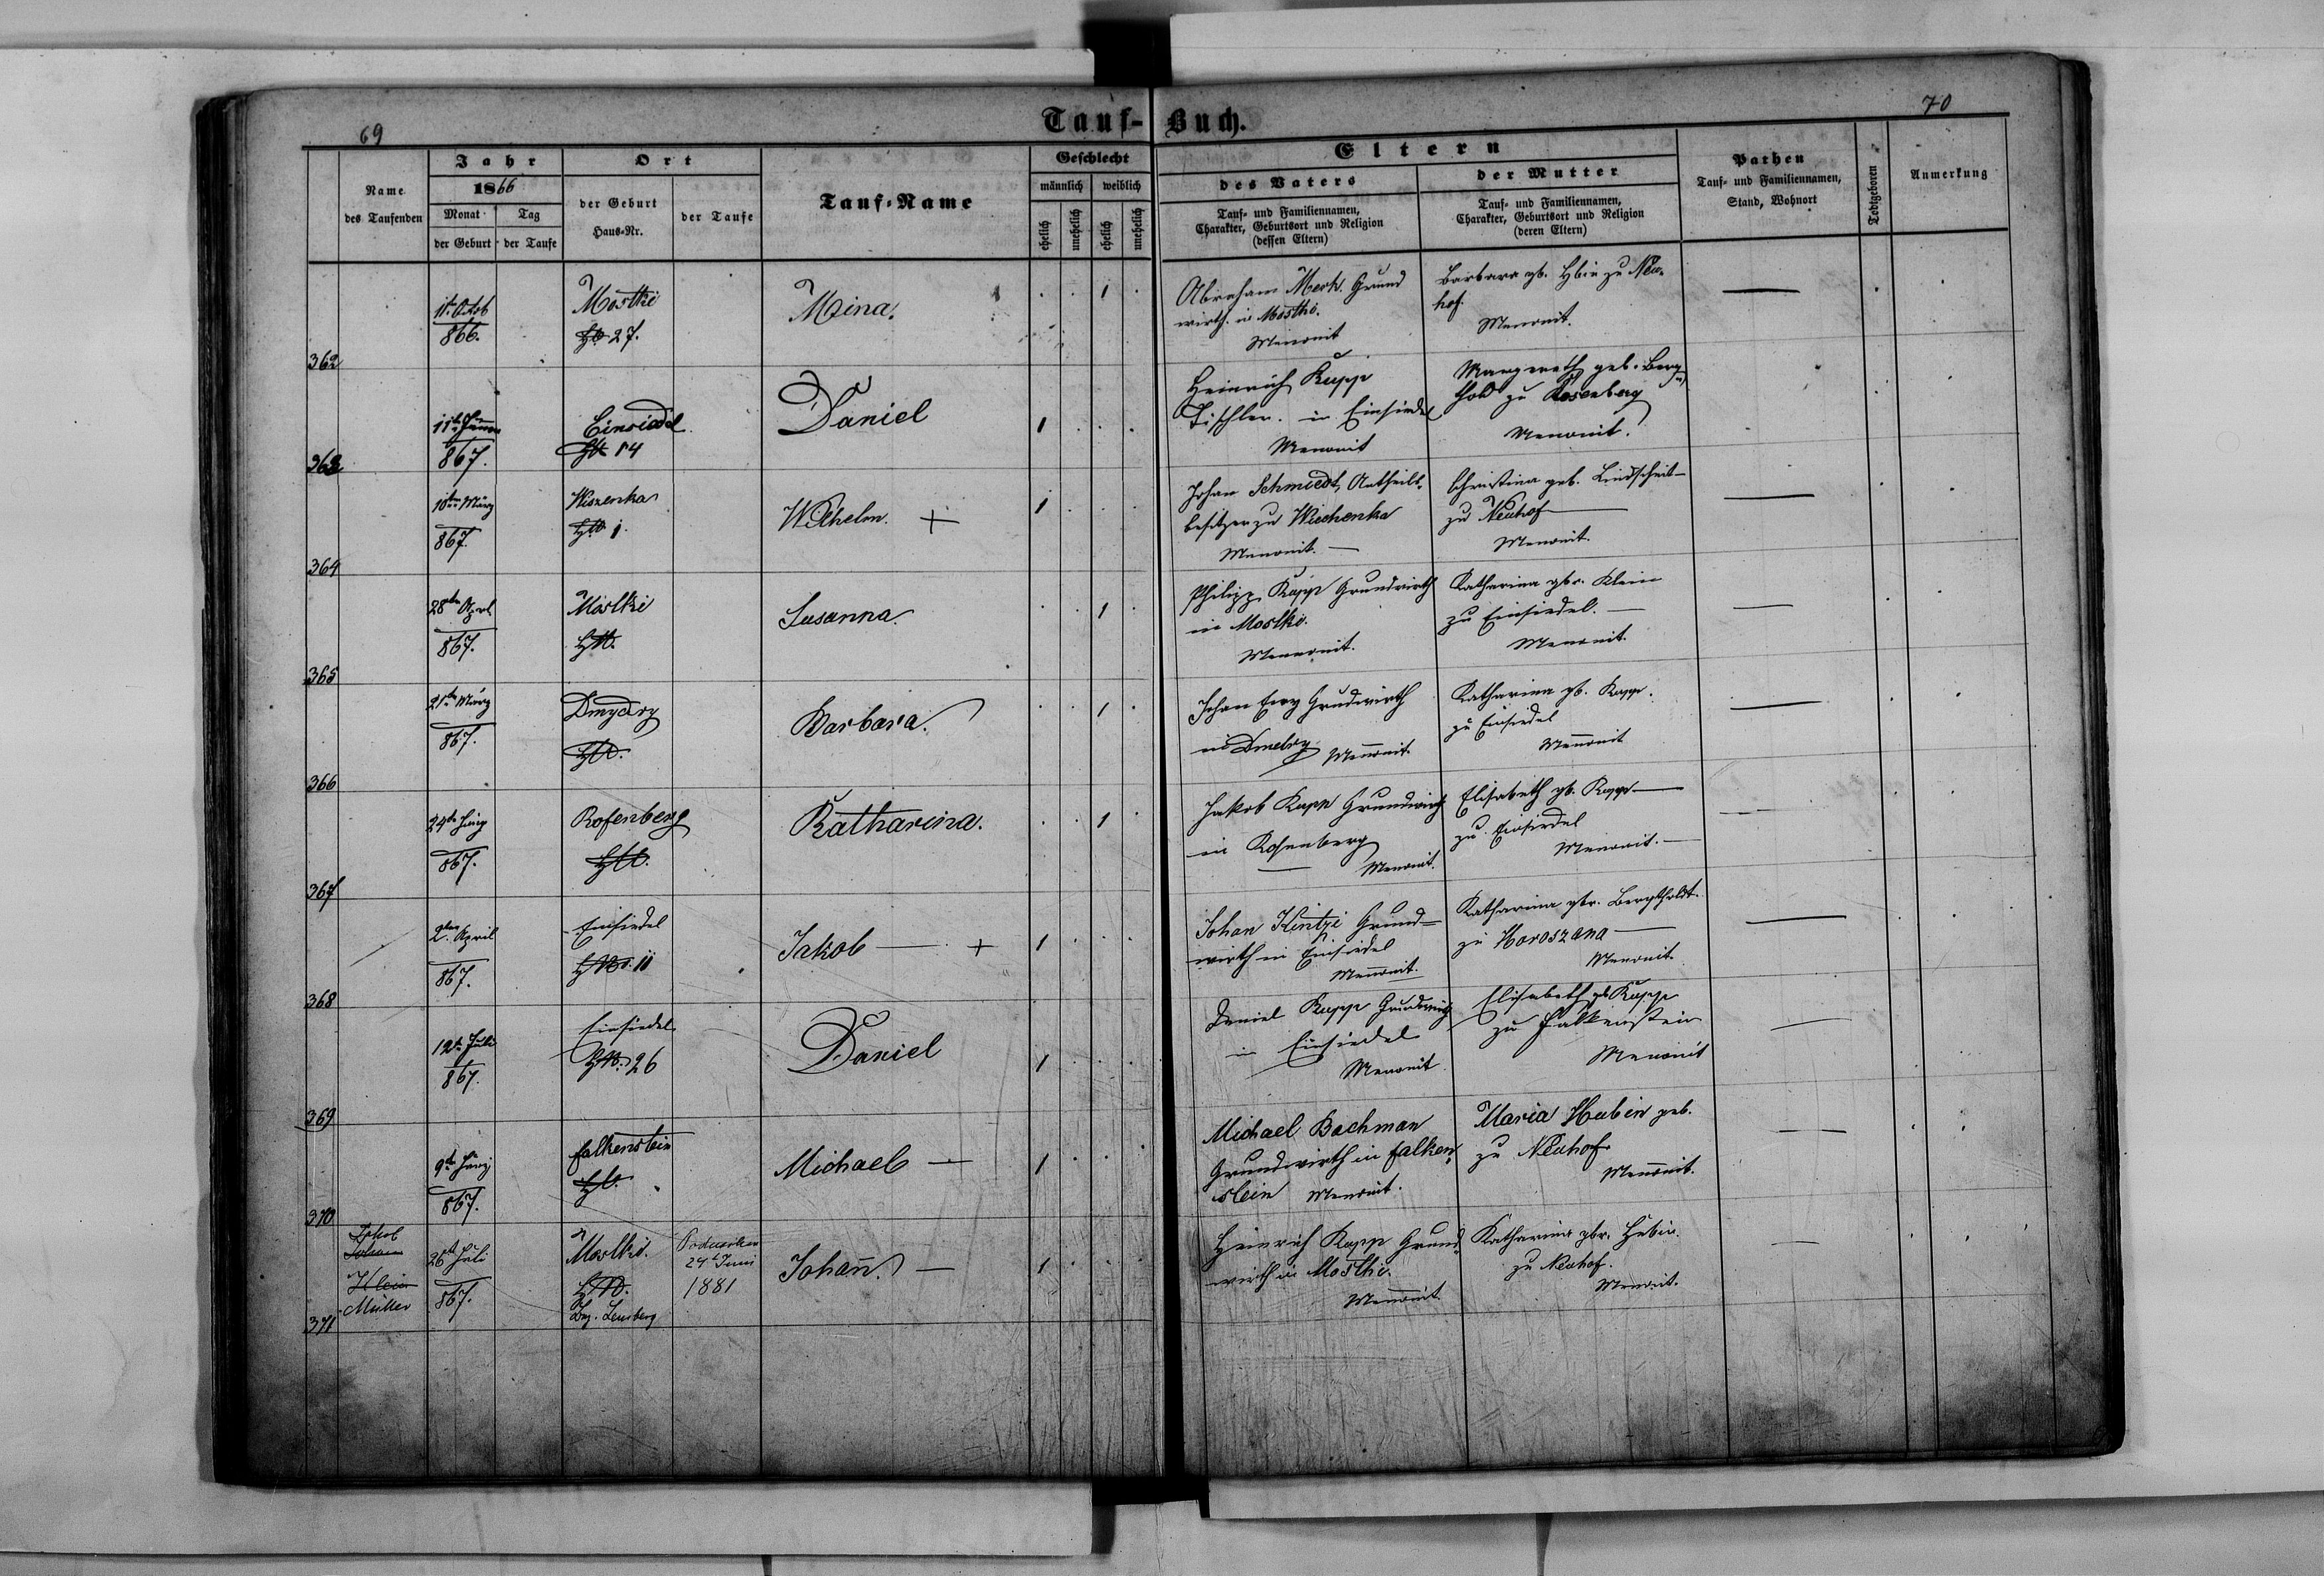 69
70
Tauf- Buch.
Name des Taufenden
Jahr
1866
Monat
Tag
der Geburt
der Taufe
Ort
der Geburt
Haus-Nr.
der Taufe
Tauf-Name
Geschlecht
männlich
weiblich
ehelich
unehelich
ehelich
unehelich
Eltern
des Vaters
Tauf- und Familiennamen,
Charakter, Geburtsort und Religion
(dessen Eltern)
der Mutter
Tauf- und Familiennamen,
Charakter, Geburtsort und Religion
(deren Eltern)
Pathen
Tauf- und Familiennamen,
Stand, Wohnort
Todtgeboren
Anmerkung
362
866.
Mostki
27.
Mina.
1
Abraham Merk. Grund
wirth. in Mostki.
Menonit
Barbara gb. Hbin zu Neu-
hof.
Menonit.
363
867.
Einsiedel
14
Daniel
1
Heinrich Rupp
Tischler. in Einsiedel
Menonit
Margareth geb. Berg
thold zu Rosenberg
Menonit.
364
10ten März
867.
Wiszenka
1.
Wilhelm. +
1
Johan Schmiedt, Antheils-
besitzer zu Wischenka
Menonit. —
Christina geb. Lindscheit—
zu Neuhof
Menonit.
365
28ten Aprl
867.
Mostki
Susanna.
1
Philipp Rupp Grundwirth
in Mostki.
Mennonit.
Katharina gbr. Klein
zu Einsiedel. —
Menonit.
366
21ten März
867.
Dmydry
Barbara.
1
Johan Ewy Grundwirth
in Dmelry
Menonit.
Katharina gb. Rupp.
zu Einsiedel
Menonit
367
24ten Juny
867.
Rosenberg
Katharina.
1
Jakob Rupp Grundwirth
in Rosenberg
Menonit.
Elisabeth gb. Rupp
zu Einsiedel
Menonit.
368
2ten April
867.
Einsiedel
11
Jakob — +
1
Johan Kintzi Grund=
wirth in Einsiedel
Menonit.
Katharina gbr. Bergtholdt.
zu Horoszana
Menonit
369
12t. Juli
867.
Einsiedel
26
Daniel
1
Daniel Rupp Grundwirth
in Einsiedel
Menonit
Elisabeth gb Rupp
zu Falkenstein
Menonit
370
9t. Juny
867.
Falkenstein
Michael —
1
Michael Bachman
Grundwirth in Falken-
stein Menonit.
Maria Hubin geb.
zu Neuhof
Menonit.
371
Jakob
Johann
Klein
Müller
26t. Juli
867.
Mostki.
Bez. Lemberg
24t Juni
1881
Johan̄. —
1
Heinrich Rupp Grund-
wirth in Mostki.
Menonit
Katharina gbr. Hubin.
zu Neuhof.
Menonit.